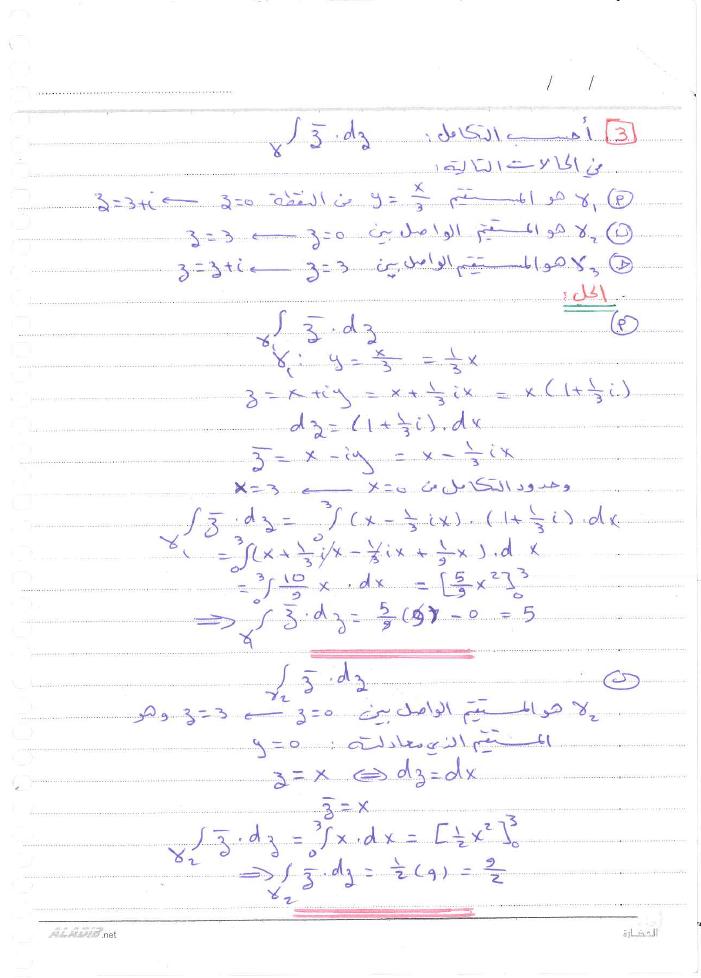 / /
3 أحسب التكامل: ∫_γ z̄ · dz
في الحالات التالية:
(P) γ₁ هو المستقيم y = x/3 من النقطة z=0 ← z=3+i
(ب) γ₂ هو المستقيم الواصل بين z=0 ← z=3
(ج) γ₃ هو المستقيم الواصل بين z=3 ← z=3+i
الحل:
(P)
∫_γ₁ z̄ · dz
γ₁: y = x/3 = 1/3 x
z = x + iy = x + 1/3 ix = x(1 + 1/3 i)
dz = (1 + 1/3 i) · dx
z̄ = x - iy = x - 1/3 ix
وحدود التكامل من x=0 ← x=3
∫_γ₁ z̄ · dz = ₀³∫ (x - 1/3 ix) · (1 + 1/3 i) · dx
= ₀³∫ (x + 1/3 ix - 1/3 ix + 1/9 x) · dx
= ₀³∫ 10/9 x · dx = [5/9 x²]₀³
⟹ ∫_γ₁ z̄ · dz = 5/9 (9) - 0 = 5
(ب) ∫_γ₂ z̄ · dz
γ₂ هو المستقيم الواصل بين z=0 ← z=3 وهو
المستقيم الذي معادلته: y=0
z = x ⟺ dz = dx
z̄ = x
∫_γ₂ z̄ · dz = ₀³∫ x · dx = [1/2 x²]₀³
⟹ ∫_γ₂ z̄ · dz = 1/2 (9) = 9/2
ALADIB.net
الحضارة